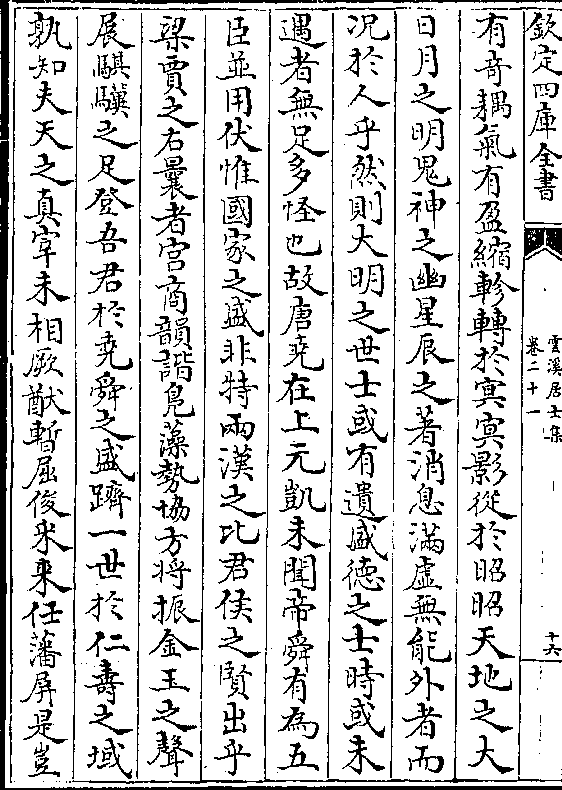 欽定四庫全書
雲溪居士集
卷二十一
十六
有奇耦氣有盈縮軫轉於㝠㝠影從於昭昭天地之大
日月之明鬼神之幽星辰之著消息滿虛無能外者而
况於人乎然則大明之世士或有遺盛德之士時或未
遇者無足多怪也故唐堯在上元凱未聞帝舜有為五
臣並用伏惟國家之盛非特兩漢之比君侯之賢出乎
梁賈之右曩者宫商韻諧鳬藻勢協方将振金玉之聲
展騏驥之足登吾君於堯舜之盛躋一世於仁壽之域
孰知夫天之真宰未相厥猷暫屈俊来任藩屏是豈